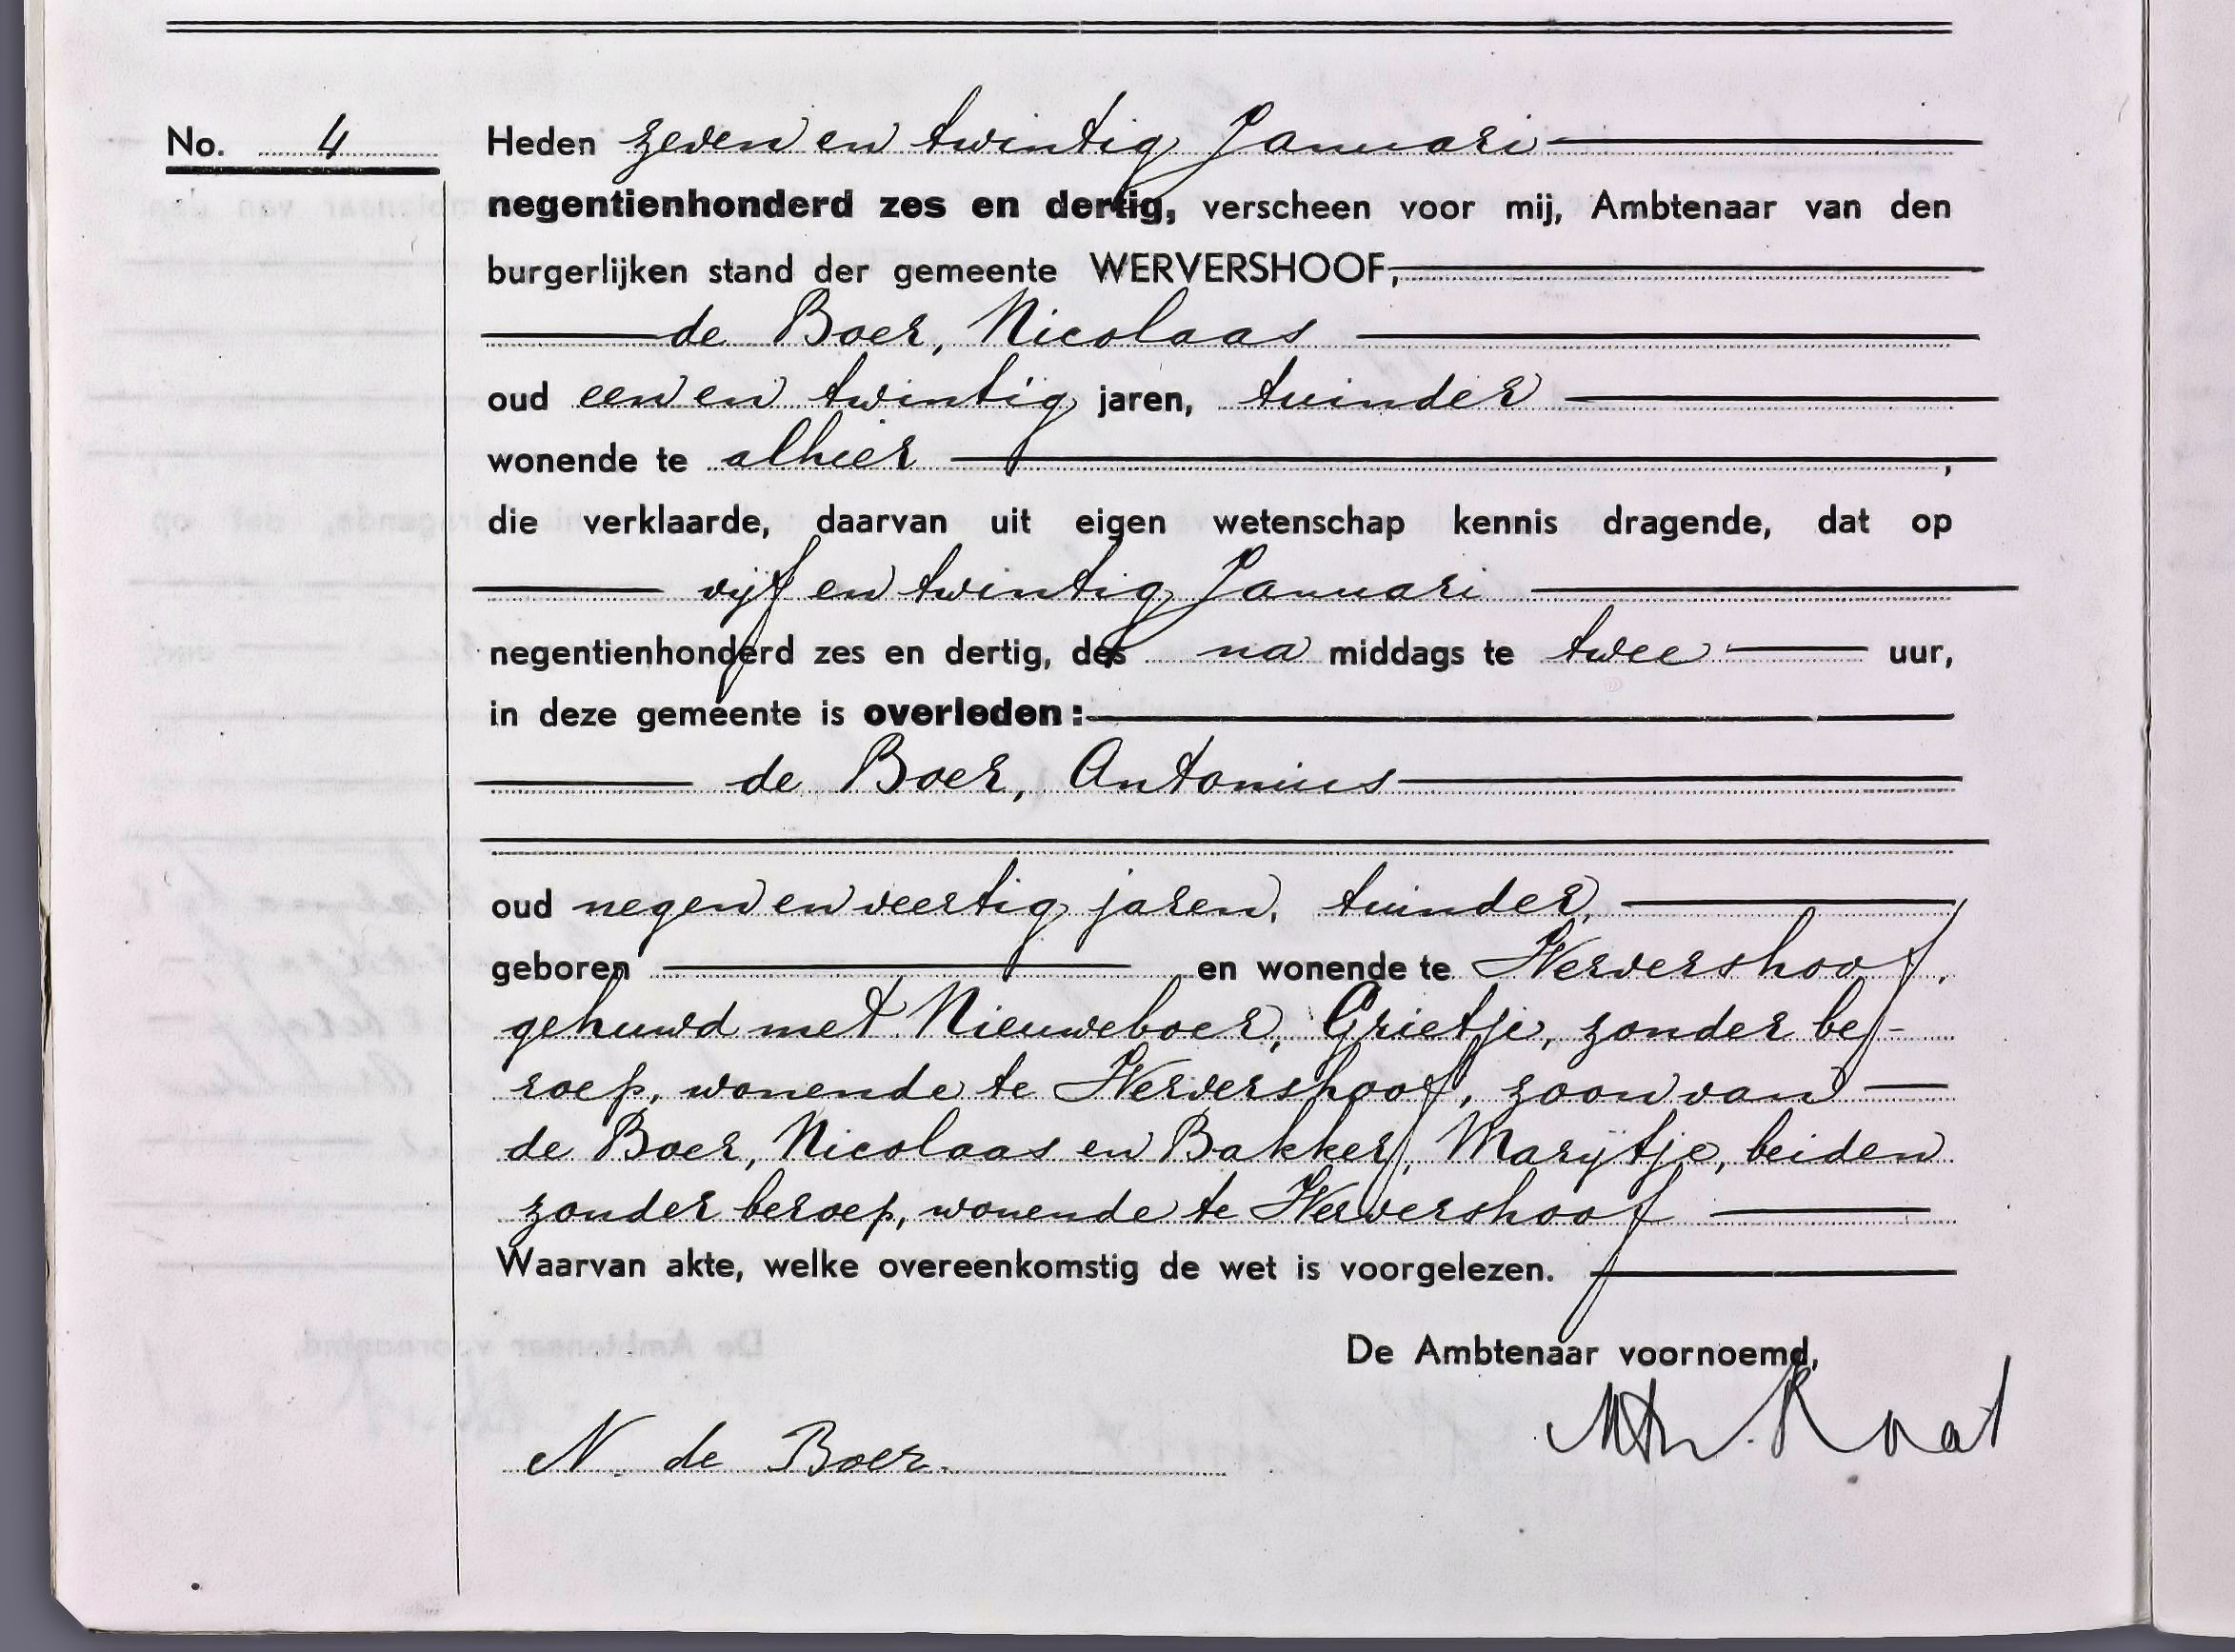 No. 4
Heden zeven en twintig Januari
negentienhonderd zes en dertig, verscheen voor mij, Ambtenaar van den
burgerlijken stand der gemeente WERVERSHOOF,
de Boer, Nicolaas
oud een en twintig jaren, tuinder
wonende te alhier ,
die verklaarde, daarvan uit eigen wetenschap kennis dragende, dat op
vijf en twintig Januari
negentienhonderd zes en dertig, des na middags te twee uur,
in deze gemeente is overleden:
de Boer, Antonius
oud negen en veertig jaren, tuinder,
geboren en wonende te Wervershoof,
gehuwd met Nieuweboer, Grietje, zonder be-
roep, wonende te Wervershoof, zoon van
de Boer, Nicolaas en Bakker, Marijtje, beiden
zonder beroep, wonende te Wervershoof
Waarvan akte, welke overeenkomstig de wet is voorgelezen.
De Ambtenaar voornoemd,
N. de Boer.